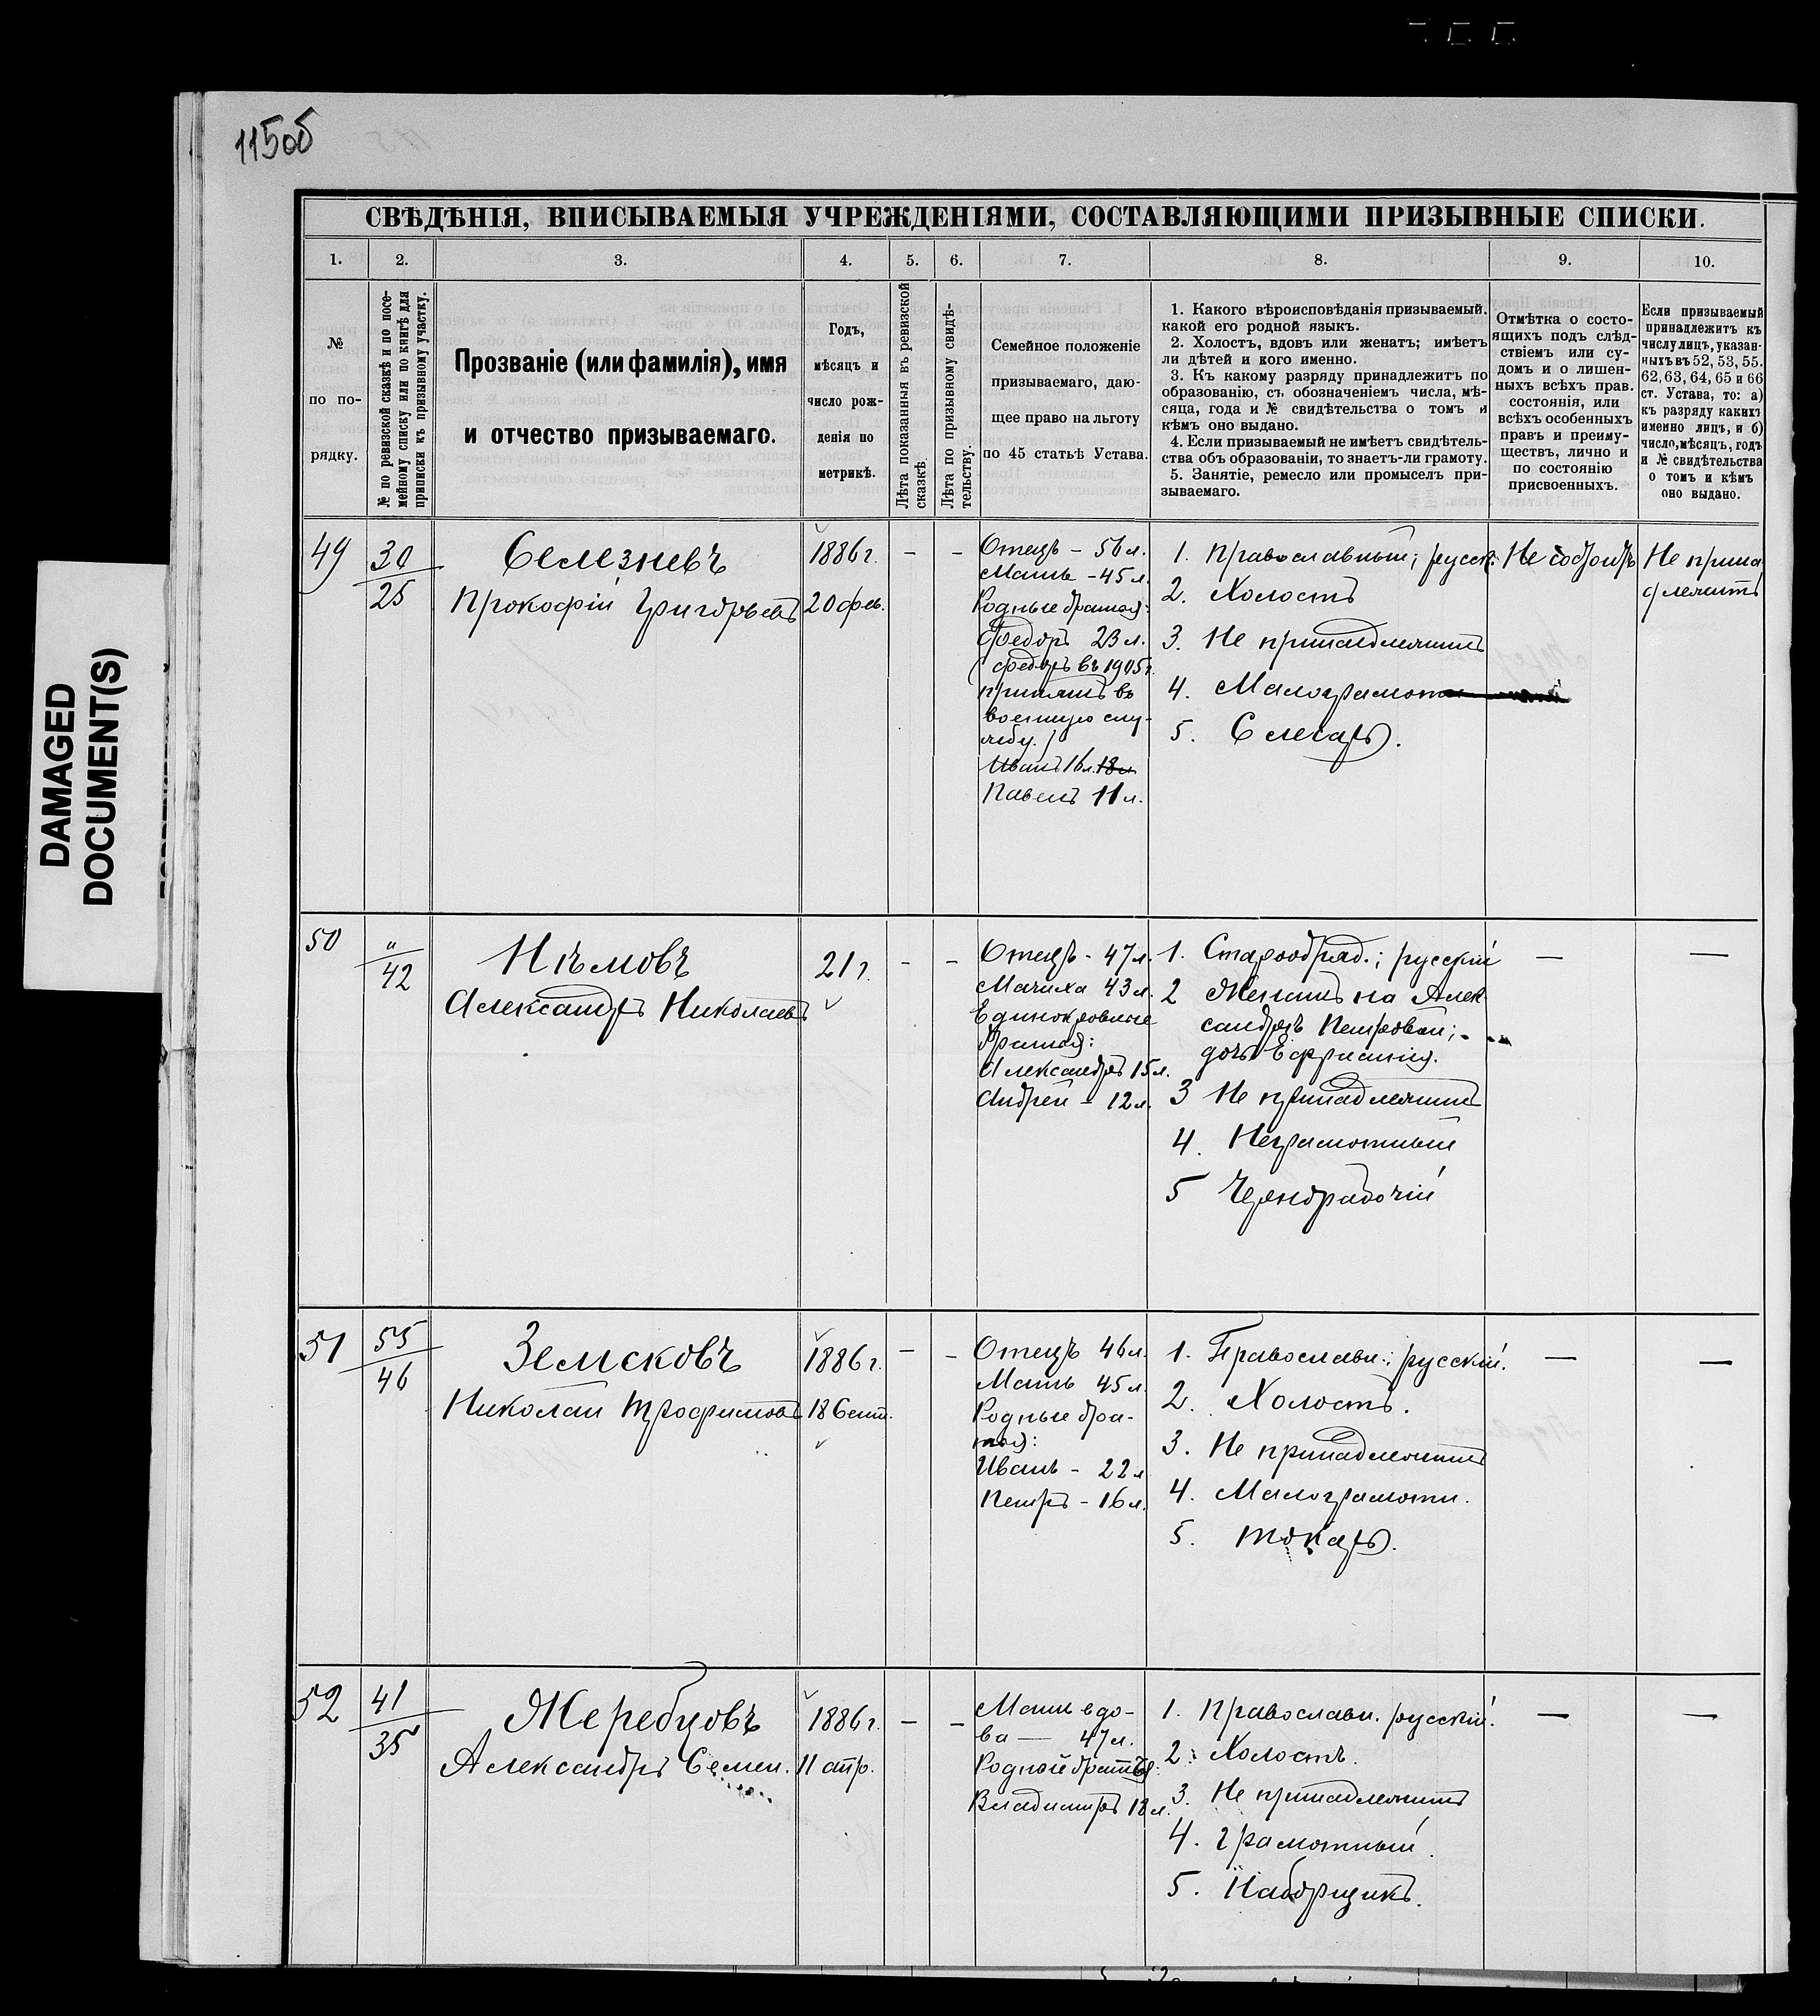 115об
DAMAGED
DOCUMENT(S)
СВѢДѢНІЯ, ВПИСЫВАЕМЫЯ УЧРЕЖДЕНІЯМИ, СОСТАВЛЯЮЩИМИ ПРИЗЫВНЫЕ СПИСКИ.
1. 2. 3. 4. 5. 6. 7. 8. 9. 10.
№
по по-
рядку.
№ по ревизской сказкѣ и по посе-
мейному списку или по книгѣ для
приписки къ призывному участку.
Прозваніе (или фамилія), имя
и отчество призываемаго.
Годъ,
мѣсяцъ и
число рож-
денія по
метрикѣ.
Лѣта показанныя въ ревизской
сказкѣ.
Лѣта по призывному свидѣ-
тельству.
Семейное положеніе
призываемаго, даю-
щее право на льготу
по 45 статьѣ Устава.
1. Какого вѣроисповѣданія призываемый,
какой его родной языкъ.
2. Холостъ, вдовъ или женатъ; имѣетъ
ли дѣтей и кого именно.
3. Къ какому разряду принадлежитъ по
образованію, съ обозначеніемъ числа, мѣ-
сяца, года и № свидѣтельства о томъ и
кѣмъ оно выдано.
4. Если призываемый не имѣетъ свидѣтель-
ства объ образованіи, то знаетъ-ли грамоту.
5. Занятіе, ремесло или промыселъ при-
зываемаго.
Отмѣтка о состо-
ящихъ подъ слѣд-
ствіемъ или су-
домъ и о лишен-
ныхъ всѣхъ прав.
состоянія, или
всѣхъ особенныхъ
правъ и преиму-
ществъ, лично и
по состоянію
присвоенныхъ.
Если призываемый
принадлежитъ къ
числу лицъ, указан-
ныхъ въ 52, 53, 55,
62, 63, 64, 65 и 66
ст. Устава, то: а)
къ разряду какихъ
именно лицъ, и б)
число, мѣсяцъ, годъ
и № свидѣтельства
о томъ и кѣмъ
оно выдано.
49
30
25
Селезневъ
Прокофій Григорьевъ
1886 г.
20 фев.
– –
Отецъ – 56 л.
Мать – 45 л.
Родные братья:
Федоръ 23 л.
(Федоръ въ 1905 г.
принятъ въ
военную слу-
жбу.)
Иванъ 16 л. 18 л
Павелъ 11 л.
1. Православный; русск.
2. Холостъ
3. Не принадлежитъ
4. Малограмотн
5. Слесарь.
Не состоитъ
Не прина
длежитъ
50
"
42
Нѣмовъ
Александръ Николаевъ
21 г.
– –
Отецъ – 47 л.
Мачиха 43 л.
Единокровные
братья:
Александръ 15 л.
Андрей – 12 л.
1. Старообряд.; русскій
2 Женатъ на Алек
сандрѣ Петровой;
дочь Ефросинія.
3 Не принадлежитъ
4. Неграмотный
5 Чернорабочій
— —
51
55
46
Земсковъ
Николай Трофимовъ
1886 г.
18 Сент.
– –
Отецъ 46 л.
Мать 45 л.
Родные бра-
тья:
Иванъ – 22 л
Петръ – 16 л.
1. Православн.; русскій.
2. Холостъ.
3. Не принадлежитъ
4. Малограмотн.
5. Токарь.
— —
52
41
35
Жеребцовъ
Александръ Семен.
1886 г.
11 апр.
– –
Мать вдо-
ва — 47 л.
Родной братъ:
Владимиръ 18 л.
1. Православн. русскій.
2. Холостъ.
3. Не принадлежитъ
4. Грамотный.
5. Наборщикъ.
— —